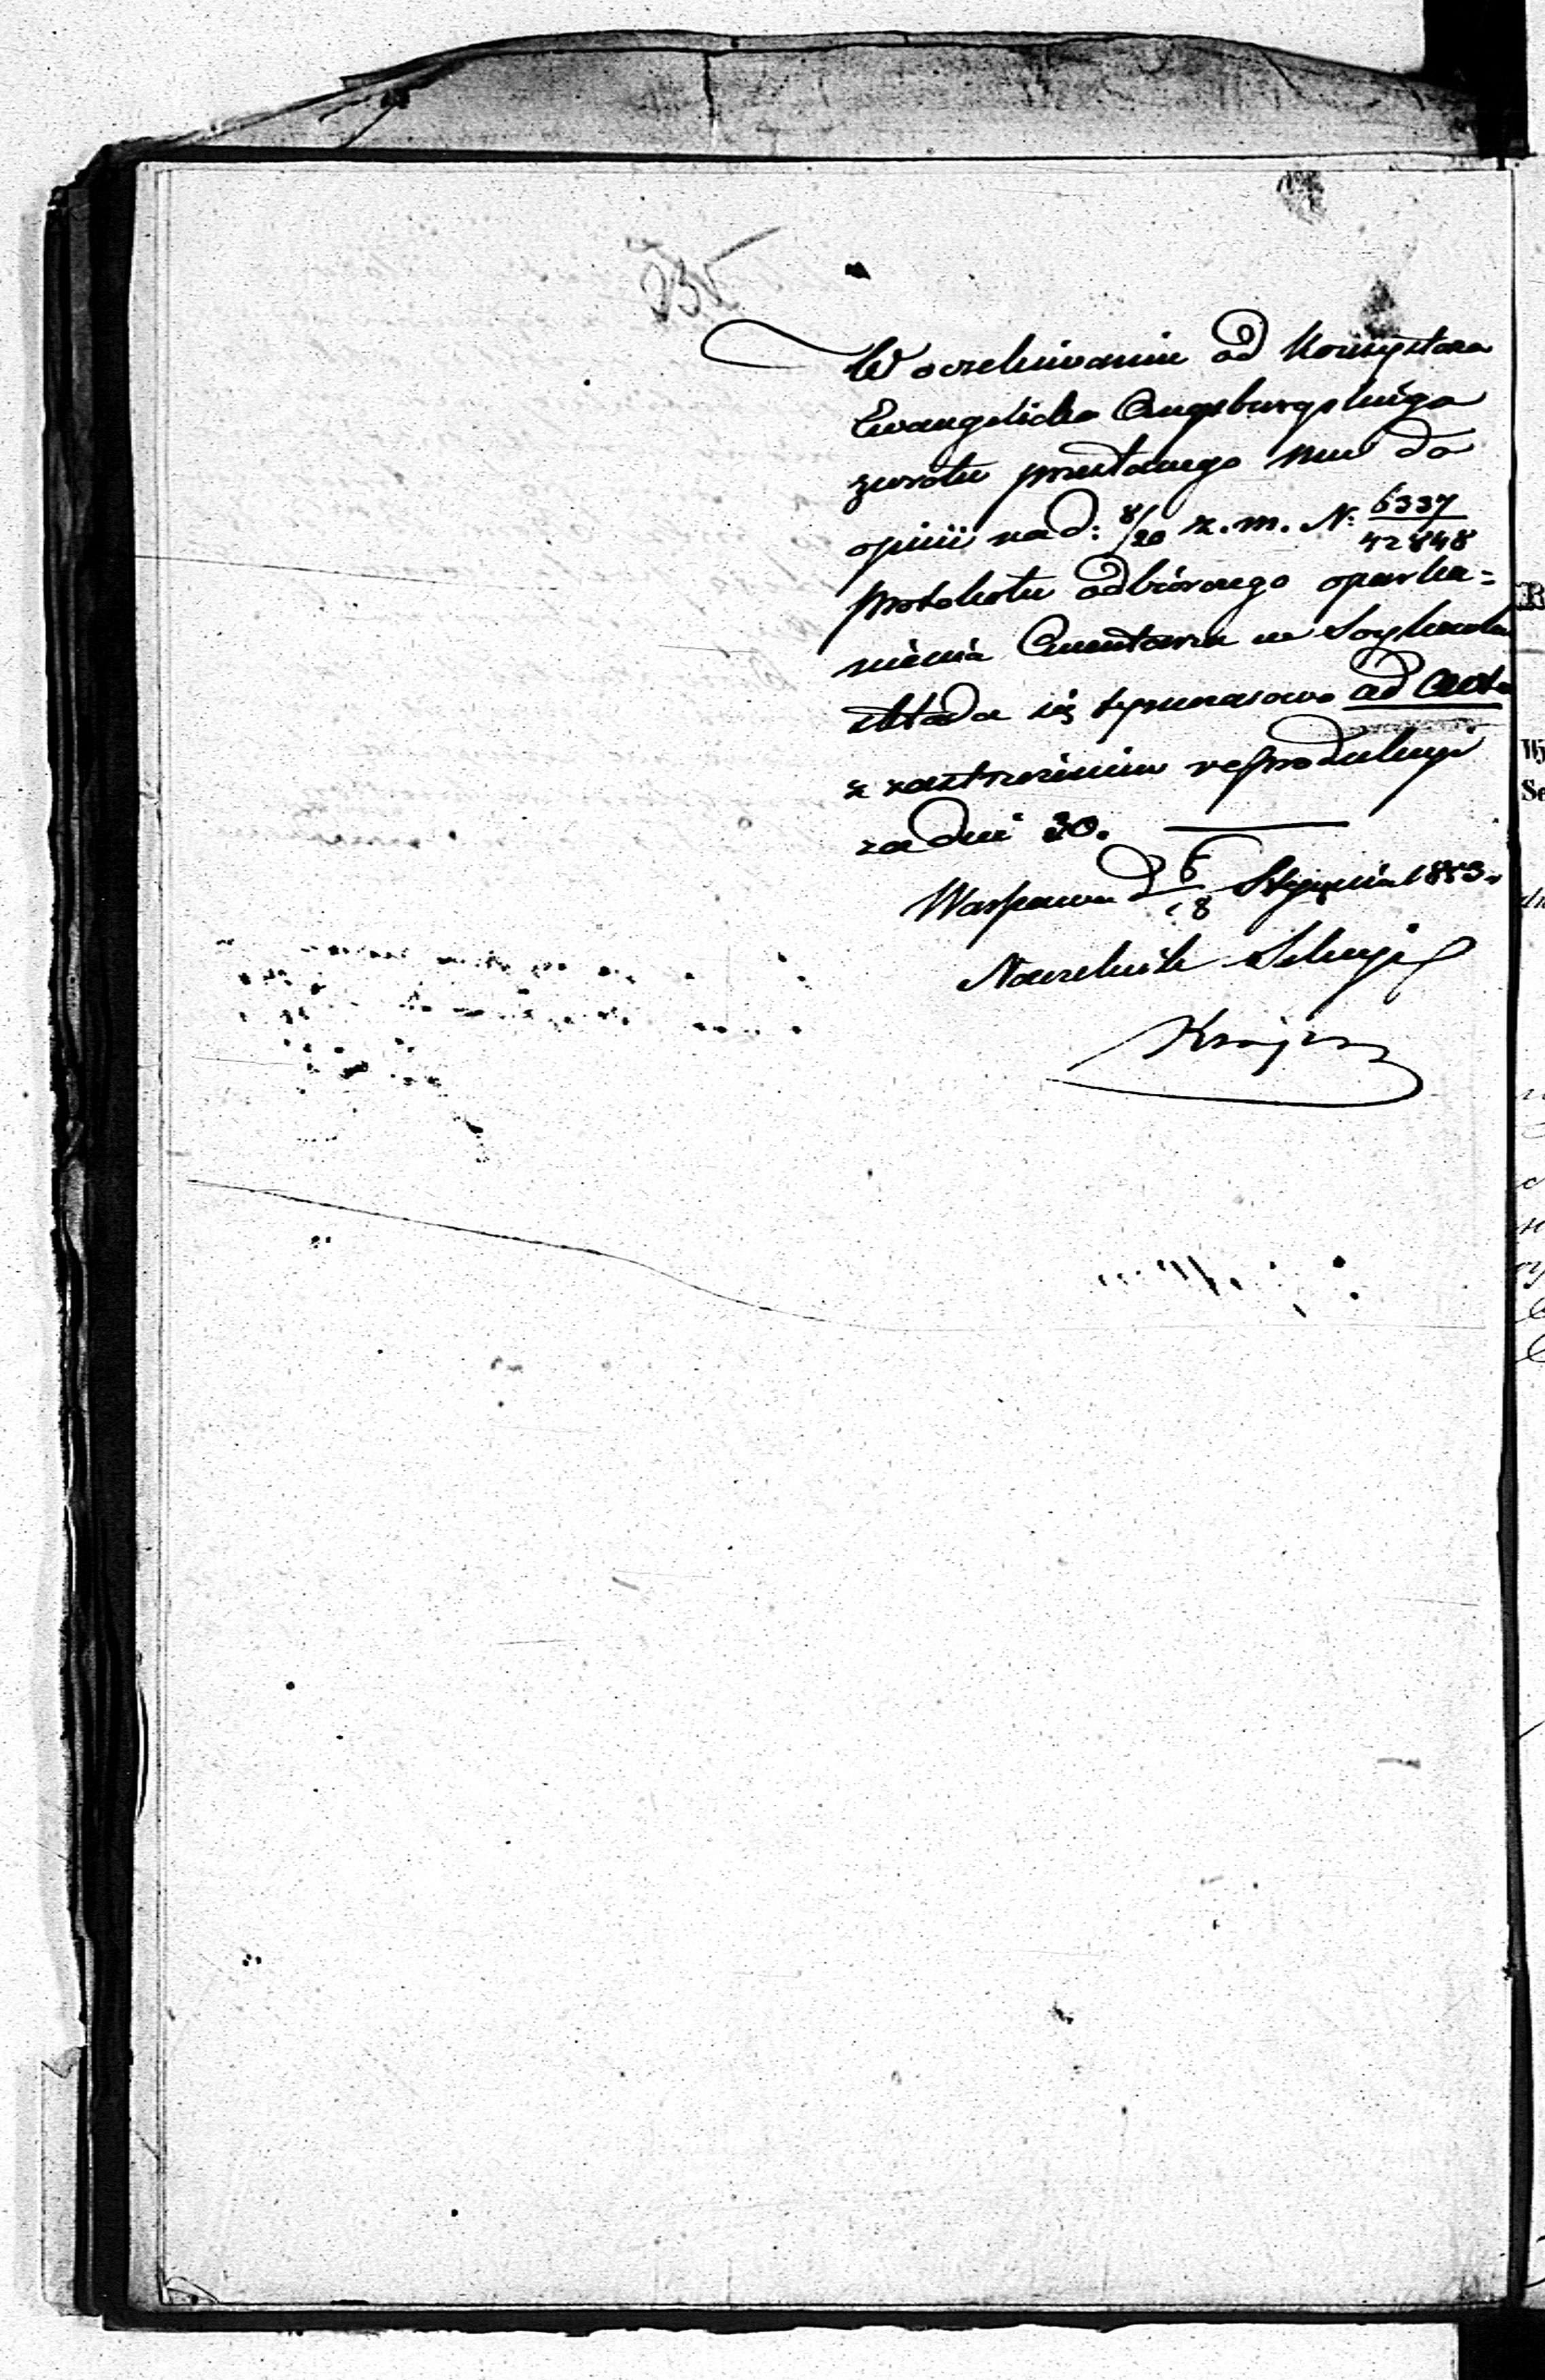 235
W oczekiwaniu od Konsystorza
Ewangelicko Augsburgskiego
zwrotu przesłanego mu do
opinii nad: 8/20 z. m. N: 6337/42848
protokołu odbiórczego oparka=
nienia Cmentarza w
składa się tymczasowo ad acta
z zastrzeżeniem reprodukcyi
za dni 30.
Warszawa d 6/18 Stycznia 1853.
Naczelnik Sekcyi